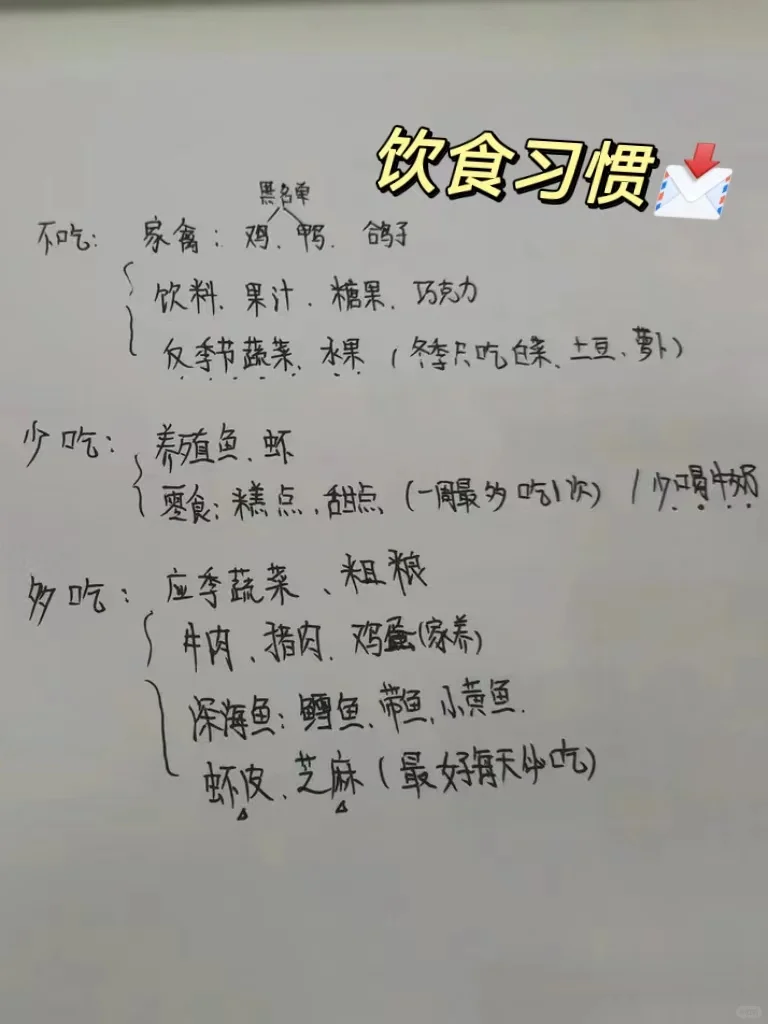 饮食习惯
黑名单
不吃: 家禽: 鸡、鸭、鸽子
饮料、果汁、糖果、巧克力
反季节蔬菜、水果 (冬季只吃白菜、土豆、萝卜)
少吃: 养殖鱼、虾
零食: 糕点、甜点 (一周最多吃1次) / 少喝牛奶
多吃: 应季蔬菜、粗粮
牛肉、猪肉、鸡蛋(家养)
深海鱼: 鳕鱼、带鱼、小黄鱼.
虾皮、芝麻 (最好每天必吃)